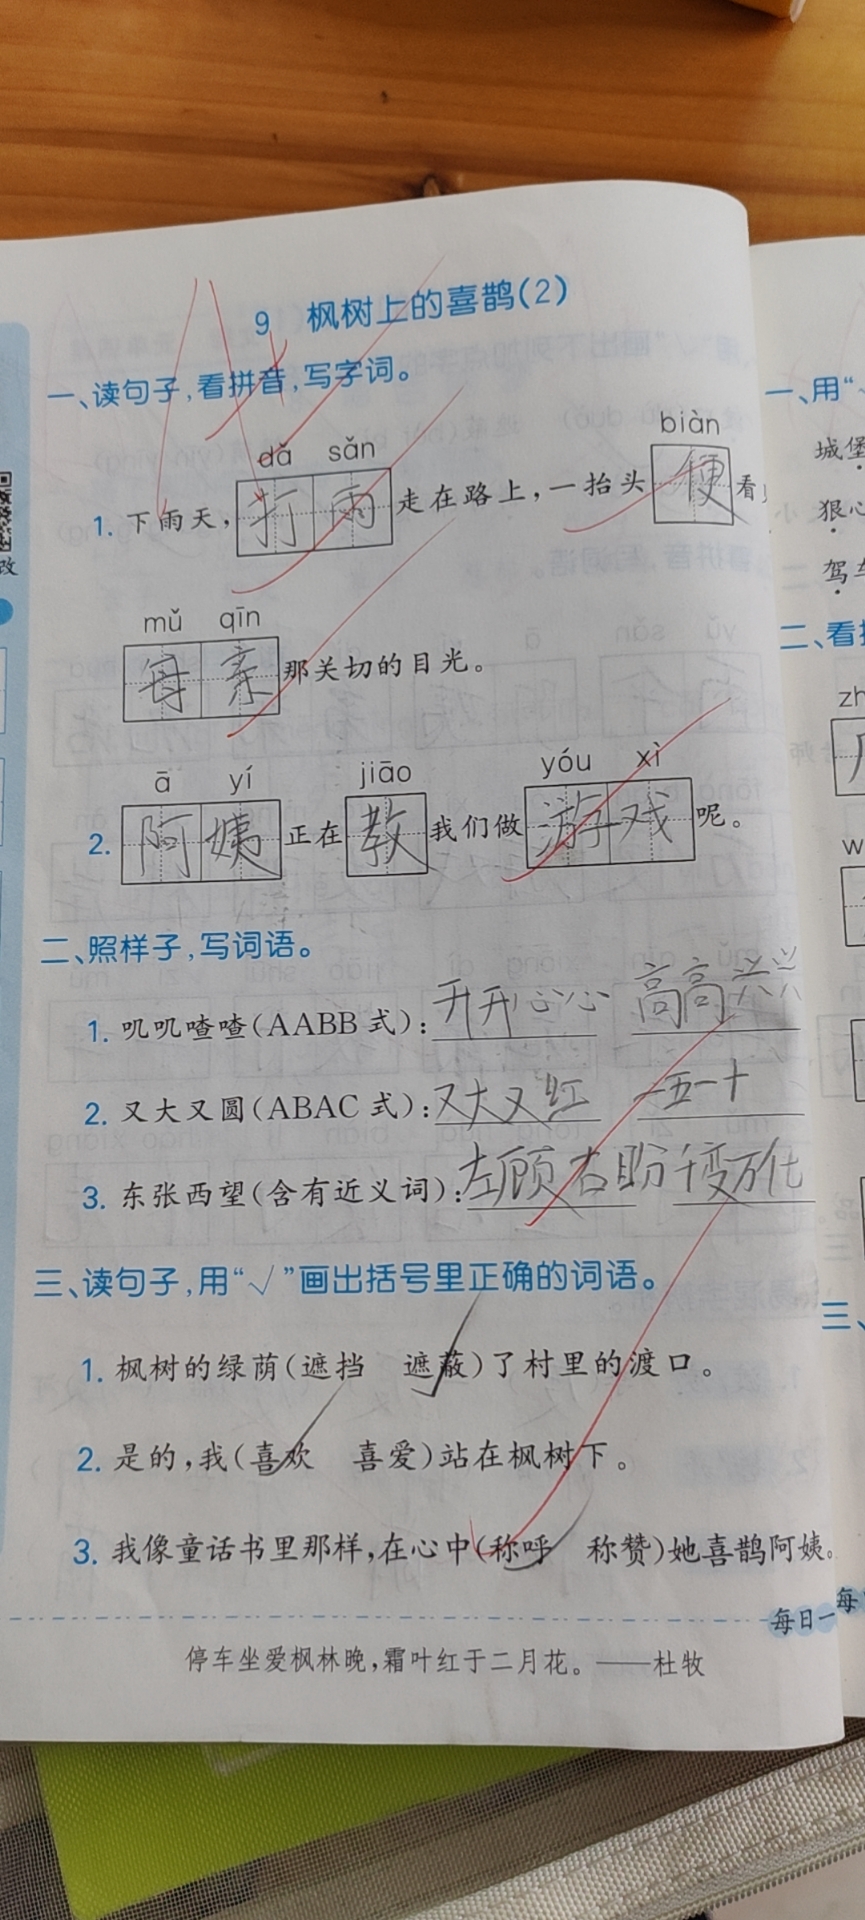 9 枫树上的喜鹊(2)
一、读句子,看拼音,写字词。
dǎ sǎn biàn
1. 下雨天,打雨走在路上,一抬头便看
mǔ qīn
母亲那关切的目光。
ā yí jiāo yóu xì
2. 阿姨正在教我们做游戏呢。
二、照样子,写词语。
1. 叽叽喳喳(AABB式):开开心心 高高兴兴
2. 又大又圆(ABAC式):又大又红 一五一十
3. 东张西望(含有近义词):左顾右盼 千变万化
三、读句子,用“√”画出括号里正确的词语。
1. 枫树的绿荫(遮挡 遮蔽)了村里的渡口。
2. 是的,我(喜欢 喜爱)站在枫树下。
3. 我像童话书里那样,在心中(称呼 称赞)她喜鹊阿姨。
每日一
停车坐爱枫林晚,霜叶红于二月花。——杜牧
改
一、用“
城堡
狠心
驾车
二、看拼
zh
w
三、
每